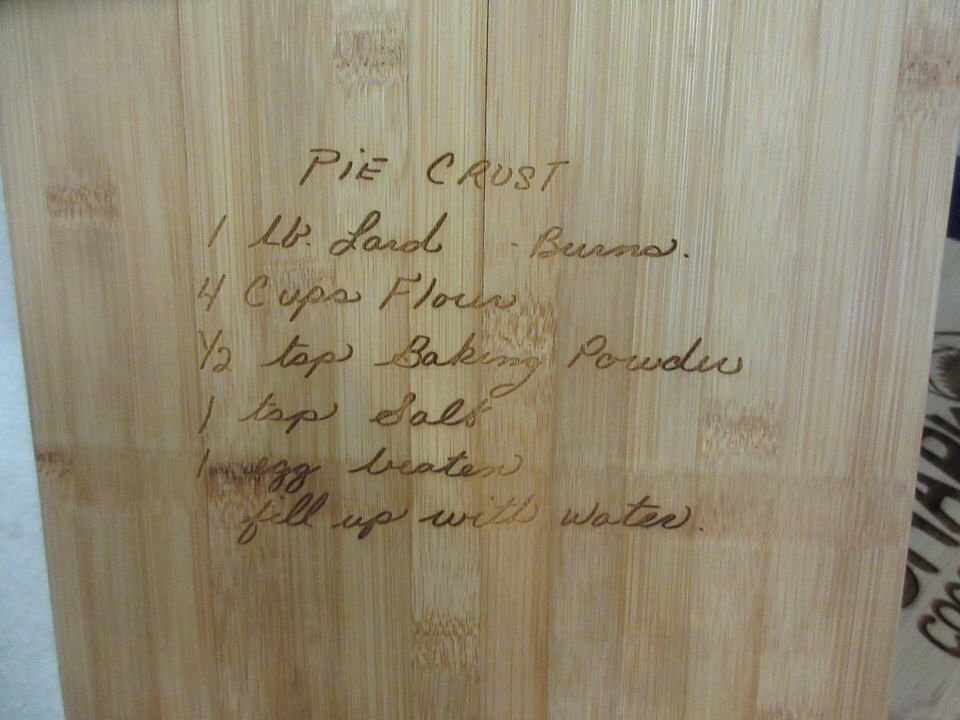 PIE CRUST
1 lb. Lard - Burns.
4 Cups Flour
1/2 tsp Baking Powder
1 tsp Salt
1 egg beaten
fill up with water.